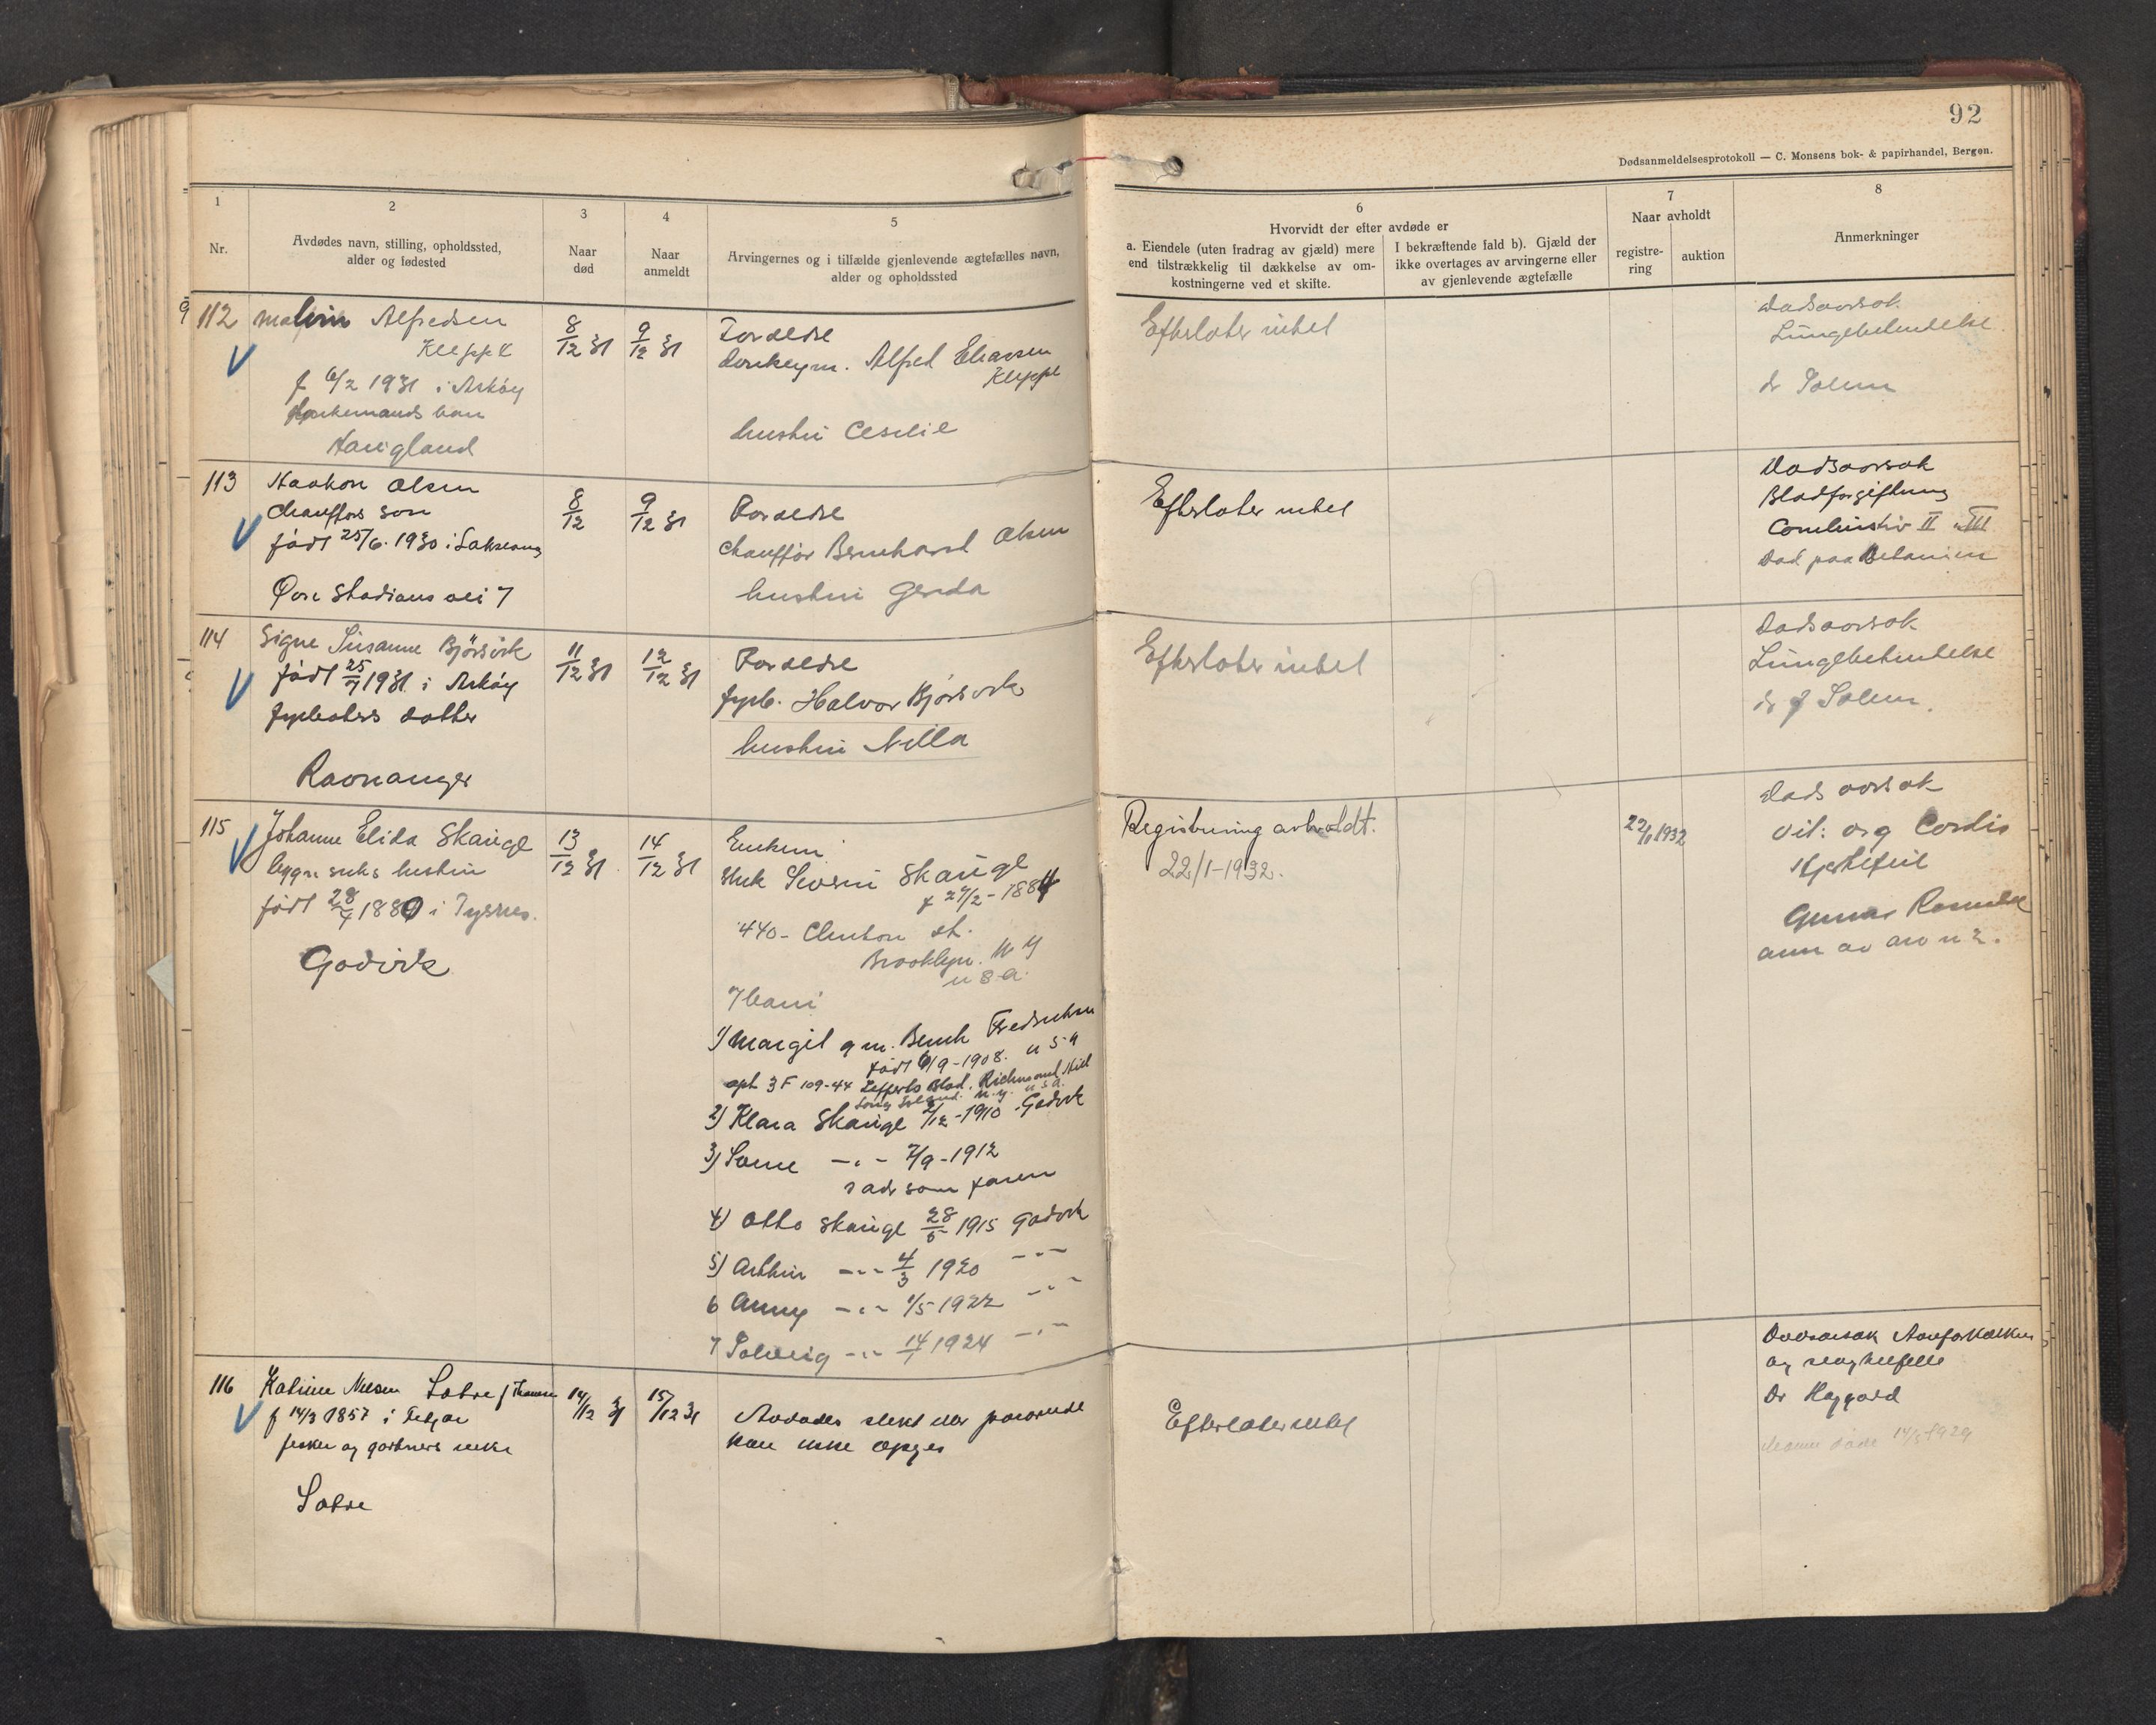 92
Dødsanmeldelsesprotokoll — C. Monsens bok- & papirhandel, Bergen.
1
Nr.
2
Avdødes navn, stilling, opholdssted,
alder og fødested
3
Naar
død
4
Naar
anmeldt
5
Arvingernes og i tilfælde gjenlevende ægtefælles navn,
alder og opholdssted
6
Hvorvidt der efter avdøde er
a. Eiendele (uten fradrag av gjæld) mere
end tilstrækkelig til dækkelse av om-
kostningerne ved et skifte.
I bekræftende fald b). Gjæld der
ikke overtages av arvingerne eller
av gjenlevende ægtefælle
7
Naar avholdt
registre-
ring
auktion
8
Anmerkninger
112
Malvin Alfredsen
Kleppe
f 6/2 1931 i Askøy
barn
Haugland
8/12 31
9/12 31
Foreldre
donkeym. Alfred Eliassen
Kleppe
hustru Cecilie
Efterlater intet
Dødsaarsak
Lungebetendelse
dr Solem
113
Haakon Olsen
Chaufførs søn
født 25/6. 1930 i Laksevaag
Øvre Stadions vei 7
8/12
9/12 31
Foreldre
Chauffør Bernhard Olsen
hustru Gerda
Efterlater intet
Dødsaarsak
Blodforgiftning
Combustio II & III
Død paa Betanien
114
Signe Susanne Bjørsvik
født 25/7 1931 i Askøy
fyrbøters datter
Ravnanger
11/12 31
12/12 31
Foreldre
fyrb. Halvor Bjørsvik
hustru Nilla
Efterlater intet
Dødsaarsak
Lungebetendelse
dr J Solem.
115
Johanne Elida Skauge
hustru
født 28/4 1880 i Tysnes.
Godvik
13/12 31.
14/12 31
Enkem
Severin Skauge
f 27/2 - 1884
440 - Clinton st.
Brooklyn. N Y
U S A.
7 barn
1) Margit g m. Bernh Fredriksen
født 6/9 - 1908. U S A
opt 3F 109-44 Lefferts Blvd. Richmond Hill
Long Island. N. Y. U S A.
2) Klara Skauge 2/12 - 1910 - Godvik
3) Sverre -"- 7/9 - 1912
adr som faren
4) Otto Skauge 28/5 1915 Godvik
5) Arthur -"- 4/3 1920 -"-
6 Anny -"- 1/5 1922 -"-
7 Solveig -"- 14/1 1924 -"-
Registrering avholdt.
22/1 - 1932.
22/1 1932
Døds aarsak
Vit: org Cordis
Hjertefeil
Gunnar
anm av arv n 2.
116
Katrine Nilsen Sotre f Thomsen
f 14/3 1857 i Fitjar
fisker og gartners enke
Sotre
14/12 31
15/12 31
Avdødes slekt eller paarørende
kan ikke opgis
Efterlater intet
Dødsaarsak Aareforkalkn
og slagtilfelle
Dr Haggard
Mann døde 14/5 1929